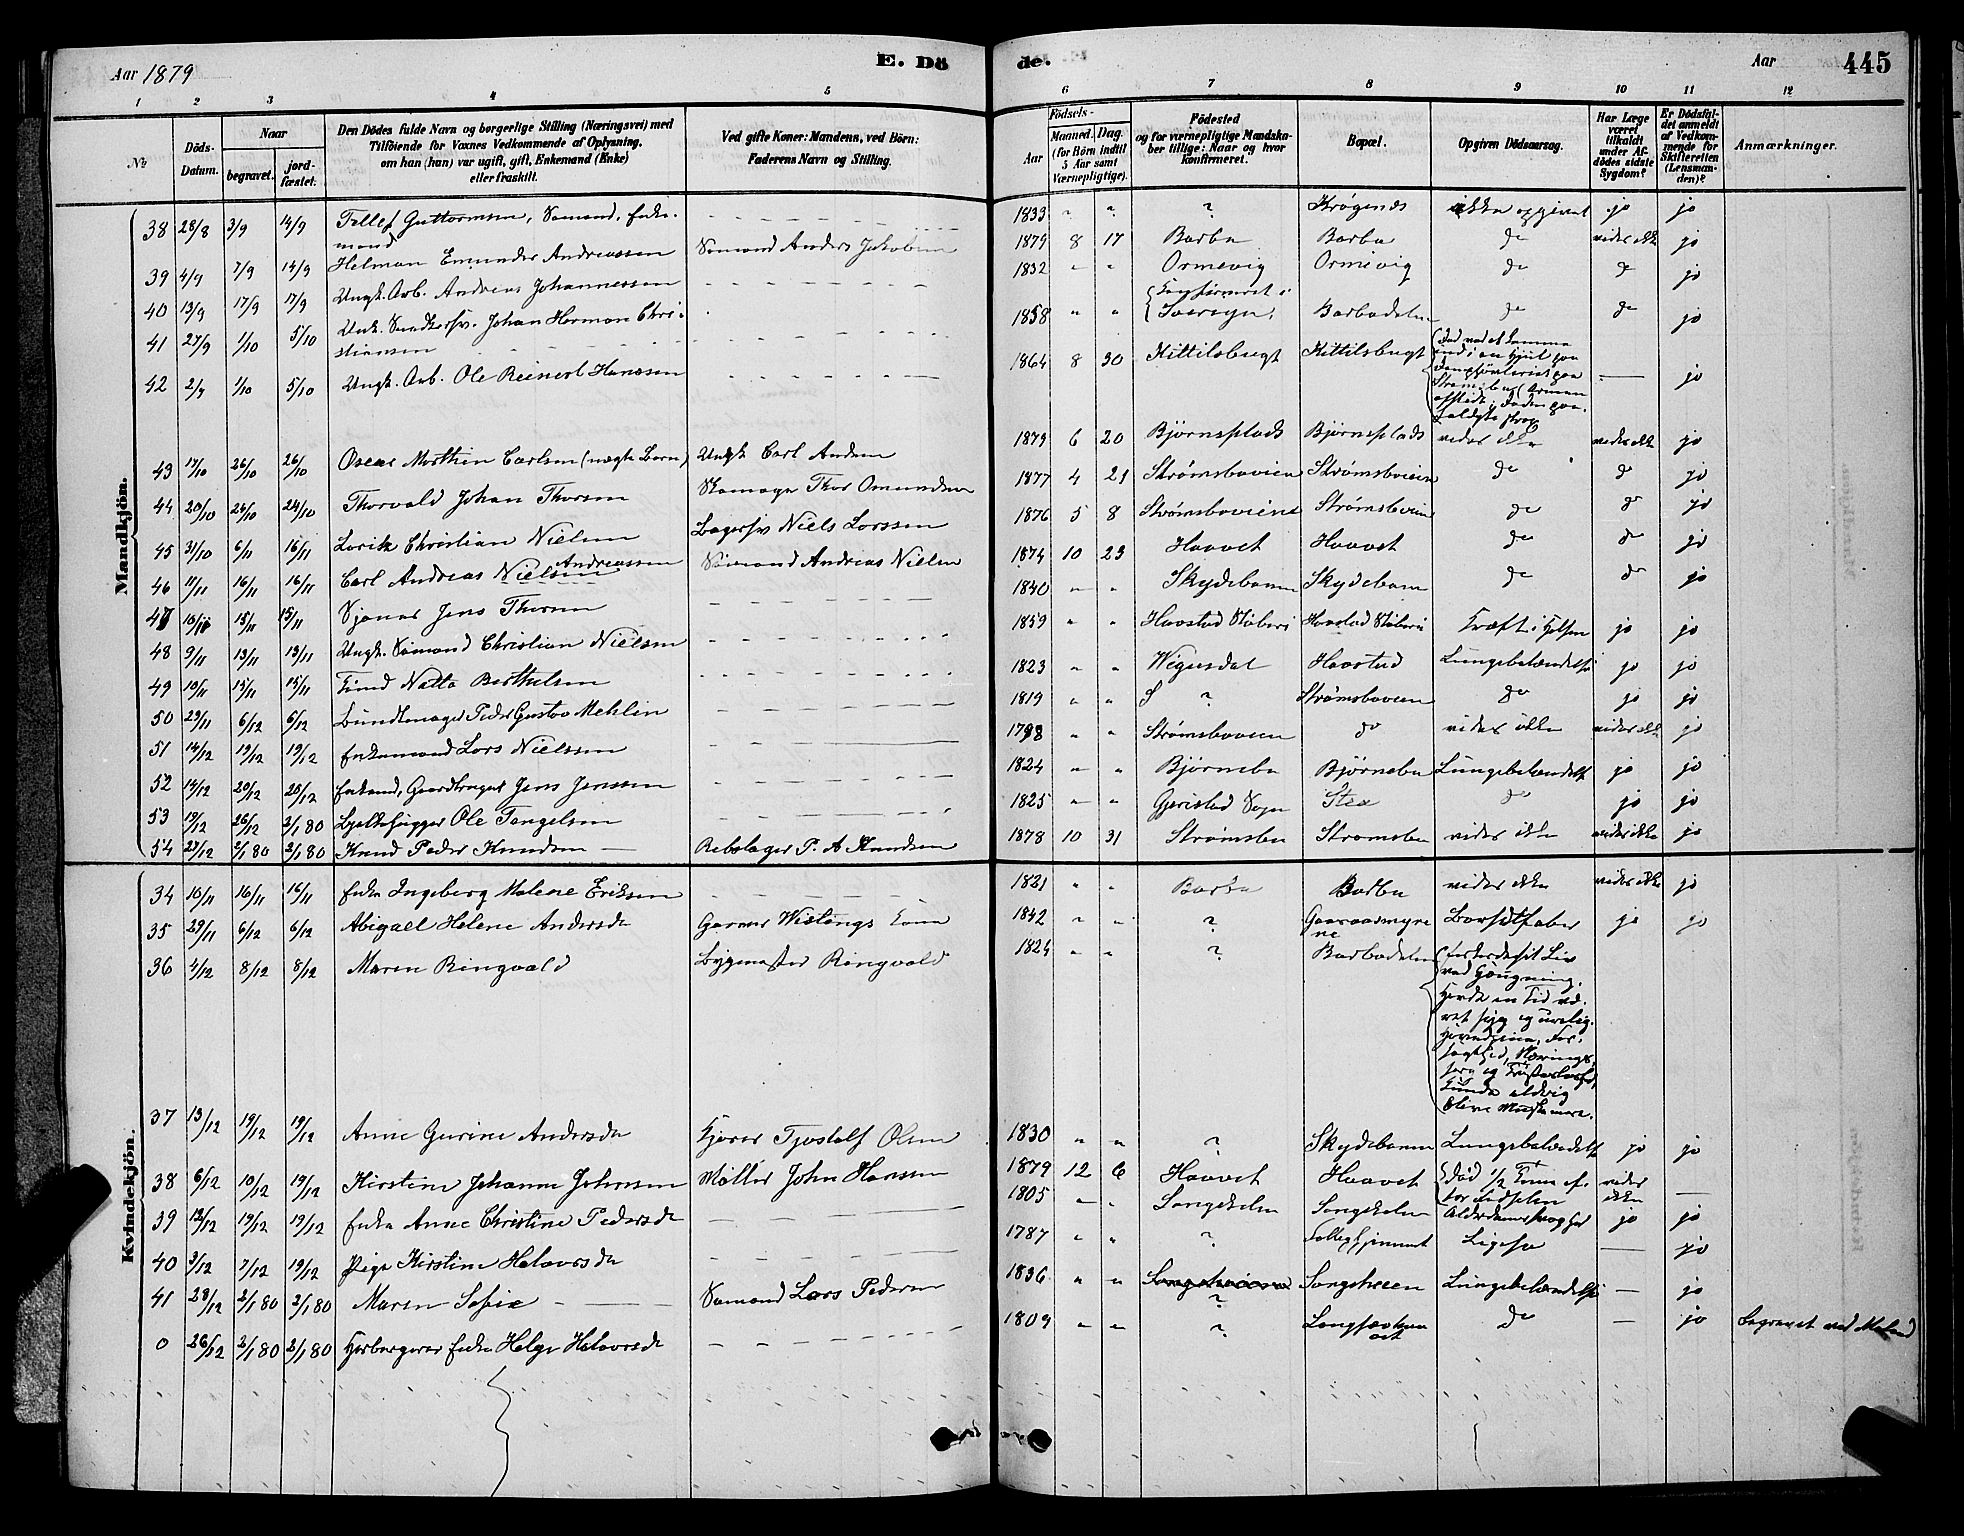 Aar 1879
E. Dö
de.
Aar
445
1 2 3 4 5 6 7 8 9 10 11 12
No
Döds-Datum.
Naar
begravet.
jordfæstet.
Den Dödes fulde Navn og borgerlige Stilling (Næringsvei) med
Tilföiende for Voxnes Vedkommende af Oplysning,
om han (hun) var ugift, gift, Enkemand (Enke)
eller fraskilt.
Ved gifte Koner: Mandens, ved Börn:
Faderens Navn og Stilling.
Födsels-
Aar
Maaned. Dag.
(for Börn indtil
5 Aar samt
Værnepligtige).
Födested
og for værnepligtige Mandska-
ber tillige: Naar og hvor
konfirmeret.
Bopæl.
Opgiven Dödsaarsag.
Har Læge
været
tilkaldt
under Af-
dödes sidste
Sygdom?
Er Dödsfal-
det anmeldt
af Vedkom-
mende for
Skifteretten
(Lensman-
den)?
Anmærkninger.
Mandkjön.
38 28/8 3/9 14/9 Tellef Guttormsen, Sømand, Enke- 1833 " " ? Krøgenes ikke opgivet jo jo
mand
39 4/9 7/9 14/9 Helman Emunder Andreassen Sømand Anders Jakobsen 1879 8 17 Barbu Barbu do vides ikke jo
40 13/9 17/9 17/9 Ungk. Arb. Andreas Johannessen 1832 " " Ormevig Ormevig do do jo
41 27/9 1/10 5/10 Ungk. Johan Herman Chri- 1858 " " Barbodalen do do jo
stiansen
42 2/9 1/10 5/10 Ungk. Arb. Ole Reinert Hanssen 1864 8 30 Kittilsbugt Kittilsbugt — jo
43 17/10 26/10 26/10 Oscar Morthen Carlsen (uægte Barn) Ungk Carl Andersen 1879 6 20 Bjørnsplads Bjørnsplads vides ikke vides ikke jo
44 20/10 24/10 24/10 Thorvald Johan Thorsen Skomager Thor Omundsen 1877 4 21 Strømsboveien Strømsboveien do do jo
45 31/10 6/11 16/11 Lorik Christian Nielsen Bagersv Niels Larssen 1876 5 8 Strømsboveien Strømsboveien do do jo
46 11/11 16/11 16/11 Carl Andreas Nielsen Andreassen Sømand Andreas Nielsen 1874 10 23 Haavet Haavet do do jo
47 10/11 15/11 15/11 Jens Thorsen 1840 " " Skydebanen Skydebanen do do jo
48 9/11 13/11 13/11 Ungk. Sømand Christian Nielsen 1859 " " Havstad Støberi Havstad Støberi Kræft i Halsen jo jo
49 10/11 15/11 15/11 Natto Berthelsen 1823 " " Vegusdal Havstad Lungebetændelse jo jo
50 29/11 6/12 6/12 Bundtmager Peder Gustav Mehlin 1819 " " ? Strømsboveien do jo jo
51 14/12 19/12 19/12 Enkemand Lars Nielssen 1798 " " Strømsboveien do vides ikke vides ikke jo
52 14/12 20/12 20/12 Gaardbruger Jens Jenssen 1824 " " Bjørnebo Bjørnebo Lungebetændelse jo jo
53 19/12 26/12 2/1 80 Bjelkehugger Ole Tangelsen 1825 " " Gjerestad Sogn Stea do jo jo
54 27/12 2/1 80 2/1 80 Knud Peder Knudsen — Rebslager P. A Knudsen 1878 10 31 Strømsbu Strømsbu vides ikke vides ikke jo
Kvindekjön.
34 10/11 16/11 16/11 Enke Ingeberg Malene Eriksen 1821 " " Barbu Barbu vides ikke vides ikke jo
35 29/11 6/12 6/12 Abigael Helene Andersdr Garver Wistings Kone 1842 " " ? Barselfeber jo jo
36 4/12 8/12 8/12 Maren Ringvold Bygmester Ringvold 1824 " " ? Barbodalen
ved Hængning.
Havde en Tid væ-
ret syg og urolig.
blive Mad mere.
37 13/12 19/12 19/12 Anne Gurine Andersdr Kjører Tjostolf Olsen 1830 " " ? Skydebanen Lungebetændelse jo jo
38 6/12 10/12 19/12 Kirstine Johanne Johnsen Møller John Hanssen 1879 12 6 Haavet Haavet Død 1/2 Time ef- vides
ter Fødselen ikke —
39 12/12 19/12 19/12 Enke Anne Christine Pedersdr 1805 " " Songekilen Songekilen Alderdomssvaghed jo jo
40 3/12 7/12 19/12 Pige Kirstine Halvorsdr 1787 " " ? Fattighjemmet Ligesaa — jo
41 28/12 2/1 80 2/1 80 Maren Sofie Sømand Lars Pedersen 1836 " " Songeheien Lungebetændelse — jo
?
0 26/12 2/1 80 2/1 80 Enke Helge Halvorsdr 1809 " " ? do — jo Begravet ved Moland